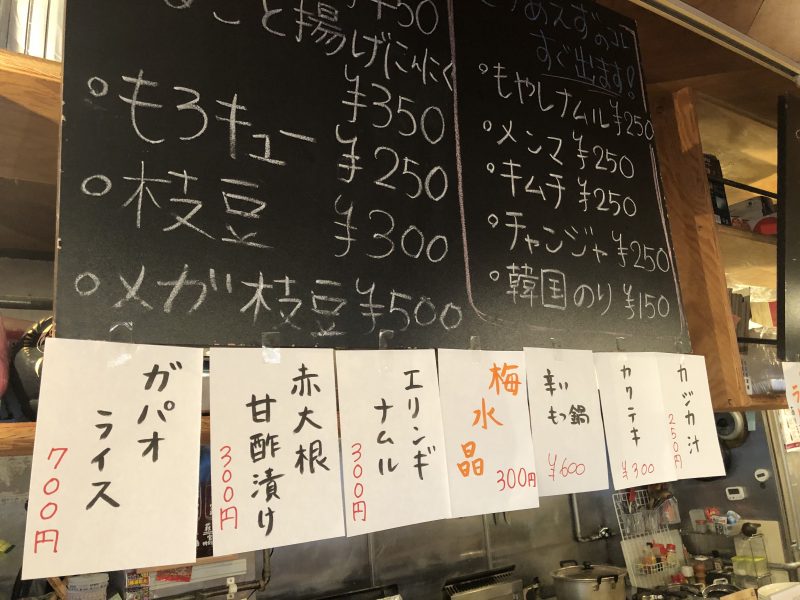 ¥450
なんこと揚げにんにく
¥350
○もろキュー ¥250
○枝豆 ¥300
○メガ枝豆 ¥500
とりあえずのコレ
すぐ出ます!
○もやしナムル ¥250
○メンマ ¥250
○キムチ ¥250
○チャンジャ ¥250
○韓国のり ¥150
ガパオ
ライス
700円
赤大根
甘酢漬け
300円
エリンギ
ナムル
300円
梅水晶
300円
辛い
もつ鍋
¥600
カクテキ
¥300
カジカ汁
250円